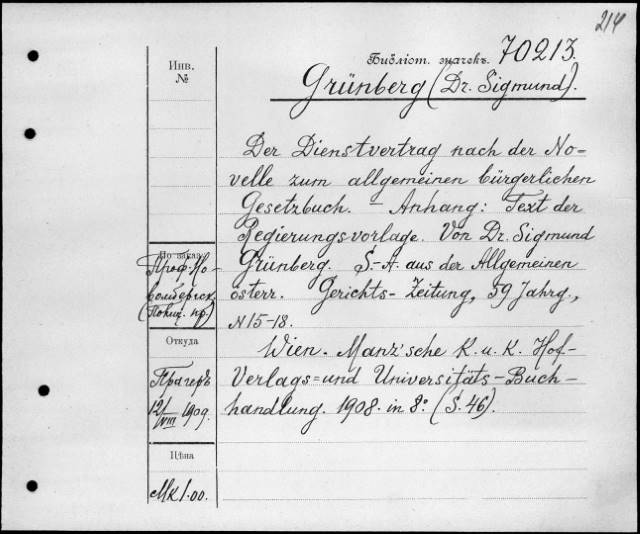 214
Библіот. значекъ. 70213.
Grünberg (Dr. Sigmund).
Инв.
№
Der Dienstvertrag nach der No-
velle zum allgemeinen bürgerlichen
Gesetzbuch. - Anhang: Text der
Regierungsvorlage. Von Dr. Sigmund
Grünberg. S.-A. aus der Allgemeinen
österr. Gerichts-Zeitung, 59 Jahrg.,
N 15-18.
Wien. Manz'sche K. u. K. Hof-
Verlags=und Universitäts-Buch-
handlung. 1908. in 8º. (S. 46).
По заказу
Проф.
Откуда
Прагеръ
12/VIII 1909.
Цѣна
Mk 1.00.